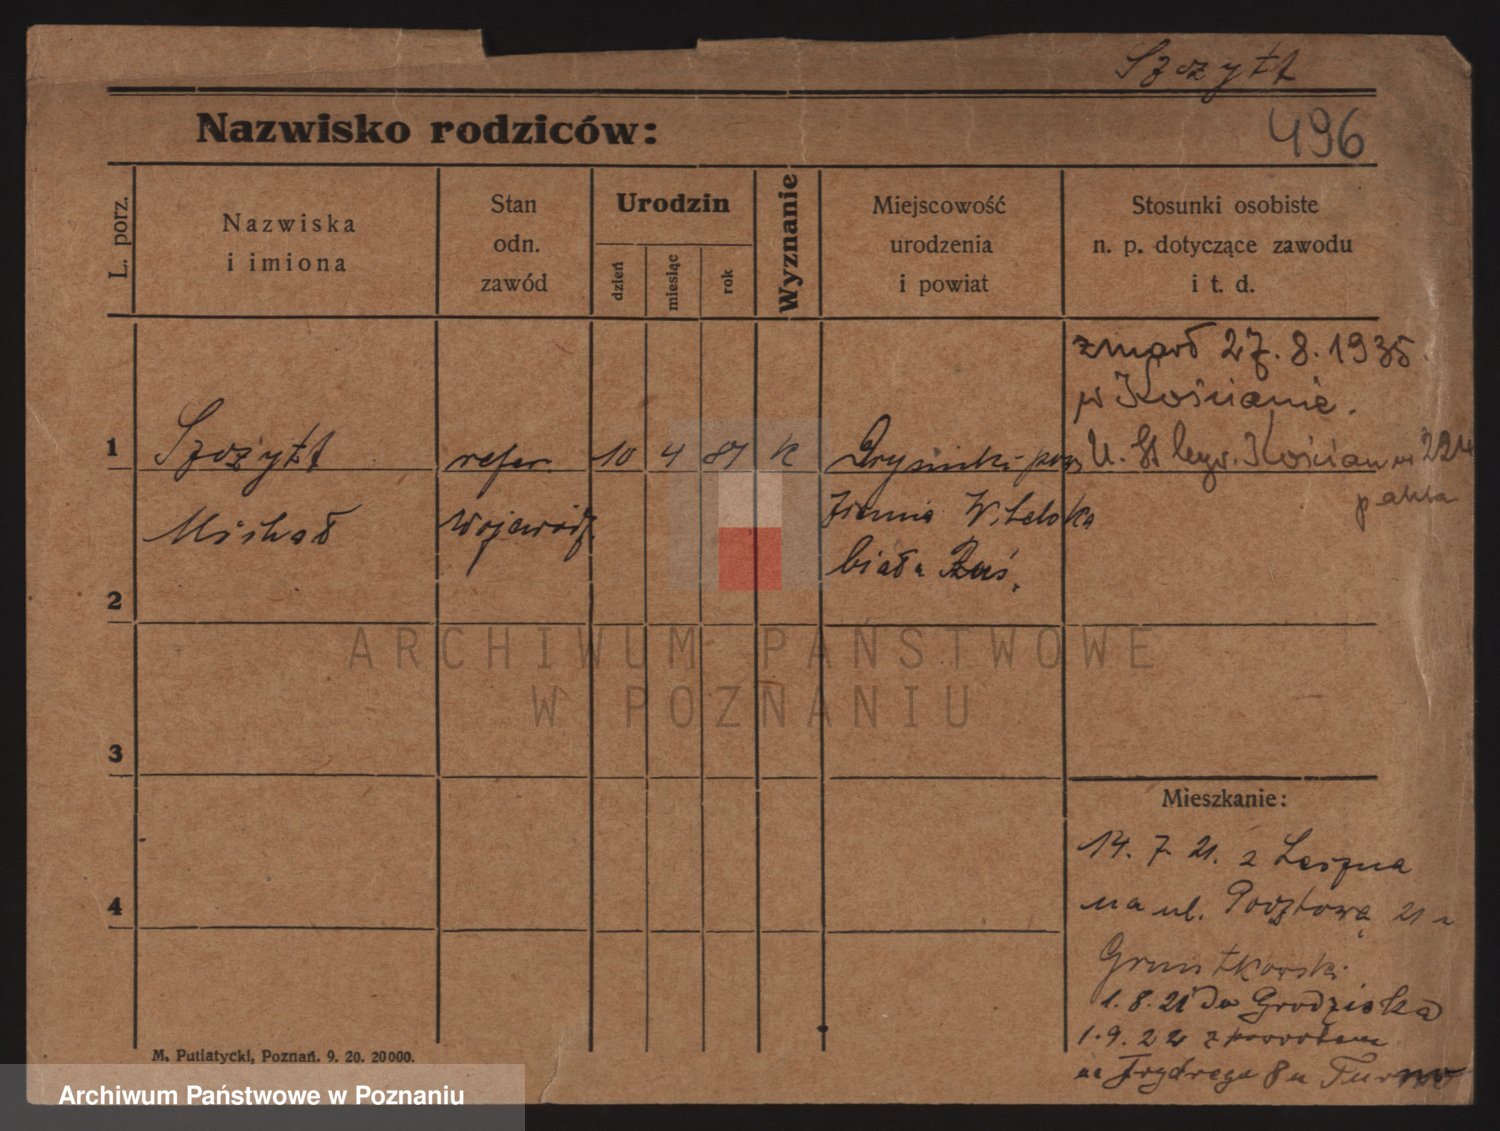 Szczytt
496
Nazwisko rodziców:
L. porz.
Nazwiska
i imiona
Stan
odn.
zawód
Urodzin
dzień
miesiąc
rok
Wyznanie
Miejscowość
urodzenia
i powiat
Stosunki osobiste
n. p. dotyczące zawodu
i t. d.
zmarł 27.8.1935
w Kościanie.
1
Szczytt
refer.
10
4
87
K
U. St
Kościan
224
Michał
wojewódz.
Ziemia Witebska
biała Ruś.
2
ARCHIWUM PAŃSTWOWE
W POZNANIU
3
Mieszkanie:
14. 7. 21. z Leszna
na ul. Pocztową 21
4
1.8.21 do Grodziska
1.9.22 z powrotem
na Frydrega 8 u
M. Putiatycki, Poznań. 9. 20. 20000.
Archiwum Państwowe w Poznaniu